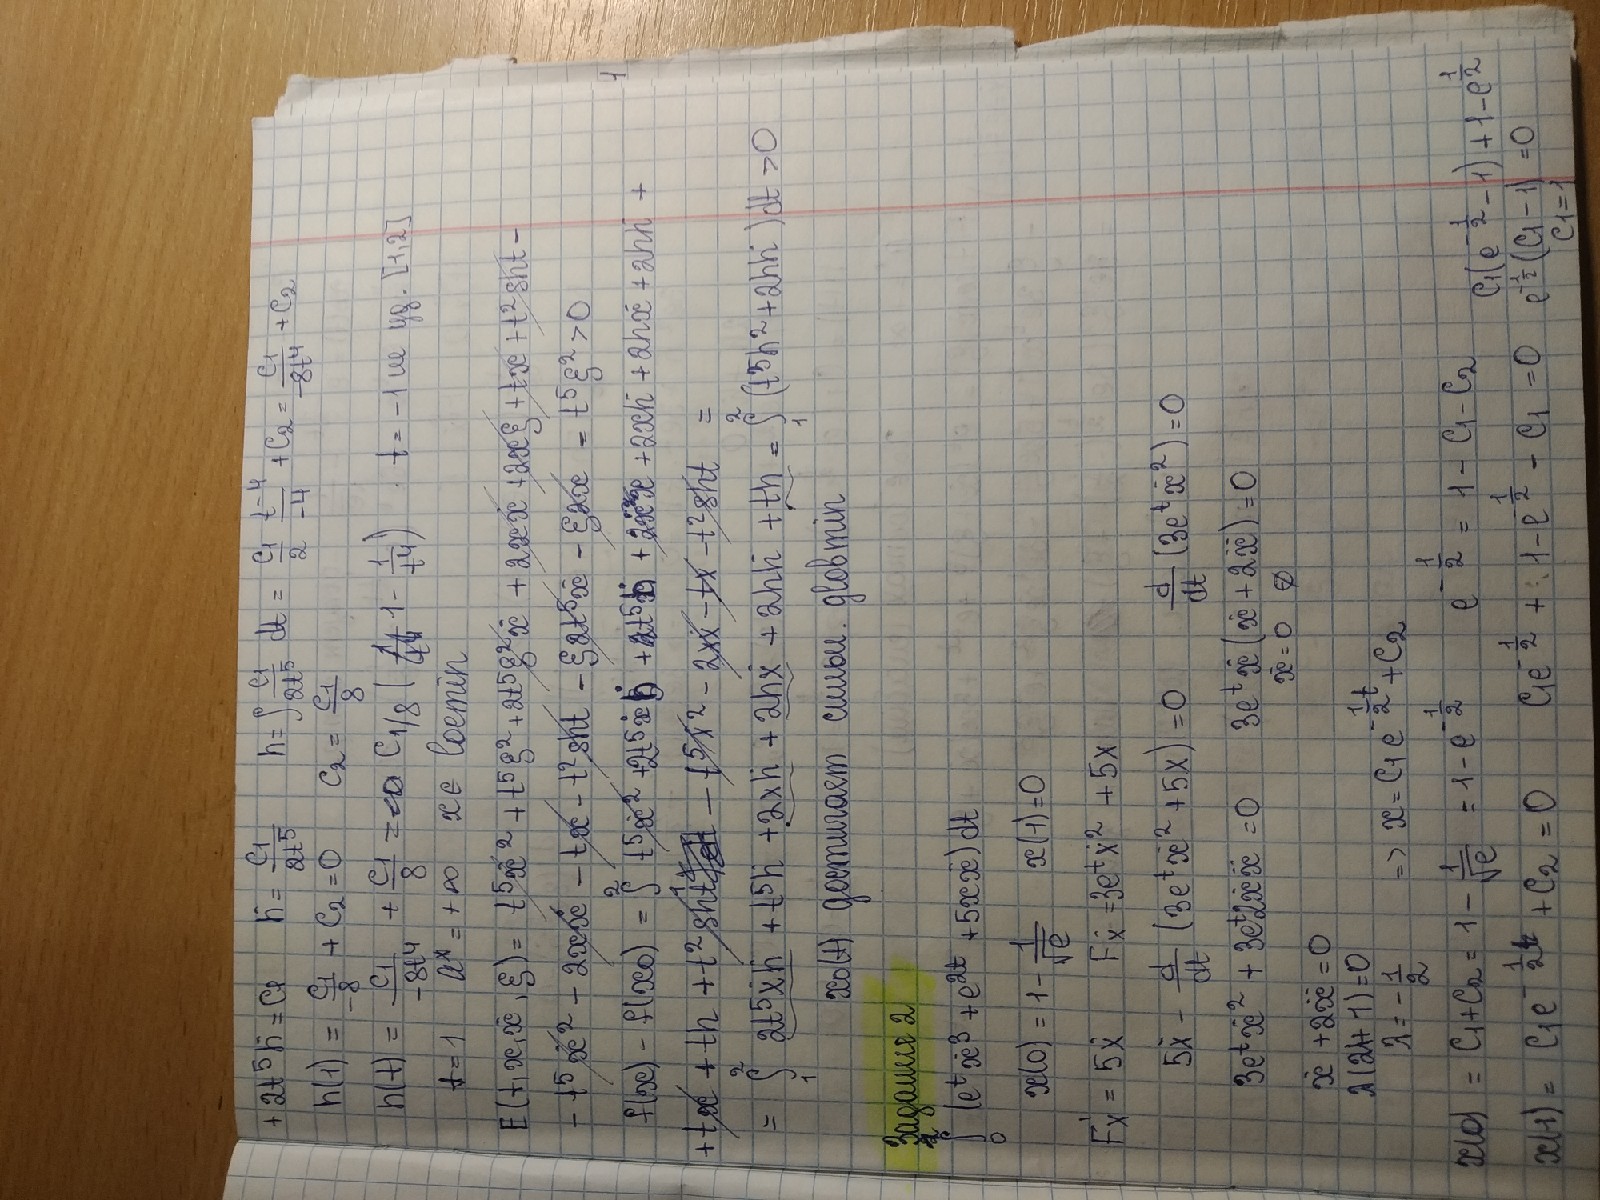 + 2t⁵ḣ = C₁   ḣ = C₁/2t⁵   h = ∫ C₁/2t⁵ dt = C₁/2 · t⁻⁴/-4 + C₂ = C₁/-8t⁴ + C₂
h(1) = C₁/-8 + C₂ = 0   C₂ = C₁/8
h(t) = C₁/-8t⁴ + C₁/8 = C₁/8 (1 - 1/t⁴)   t = -1 не уд. [1,2]
t = 1   a* = +∞   x ∈ locmin
E(t,x,ẋ,ξ) = t⁵ẋ² + t⁵ξ² + 2t⁵ξ²ẋ + 2xẋ + 2xξ + tx + t²sht -
- t⁵ẋ² - 2xẋ - tx - t²sht - ξ2t⁵ẋ - ξ2x = t⁵ξ² > 0
f(x) - f(x₀) = ∫₁² t⁵ẋ² + 2t⁵ẋḣ + 2t⁵ḣ + 2ẋx + 2xḣ + 2hẋ + 2hḣ +
+ tx + th + t²sht - t⁵ẋ² - 2xẋ - tx - t²sht =
= ∫₁² 2t⁵ẋḣ + t⁵ḣ + 2xḣ + 2hẋ + 2hḣ + th = ∫₁² (t⁵ḣ² + 2hḣ) dt > 0
x₀(t) достигает сильн. globmin
Задание 2
∫₀ (eᵗẋ³ + e²ᵗ + 5xẋ) dt
x(0) = 1 - 1/√e   x(1) = 0
F'x = 5ẋ   Fẋ = 3eᵗẋ² + 5x
5ẋ - d/dt (3eᵗẋ² + 5x) = 0   d/dt (3eᵗẋ²) = 0
3eᵗẋ² + 3eᵗ2ẋẍ = 0   3eᵗẋ(ẋ + 2ẍ) = 0
ẋ = 0 ∅
ẋ + 2ẍ = 0
λ(2λ + 1) = 0
λ = -1/2   => x = C₁e^(-1/2 t) + C₂
x(0) = C₁ + C₂ = 1 - 1/√e = 1 - e^(-1/2)   e^(-1/2) = 1 - C₁ - C₂   C₁(e^(-1/2) - 1) + 1 - e^(1/2)
x(1) = C₁e^(-1/2) + C₂ = 0   C₁e^(-1/2) + 1 - e^(-1/2) - C₁ = 0   e^(-1/2)(C₁ - 1) = 0
C₁ = 1